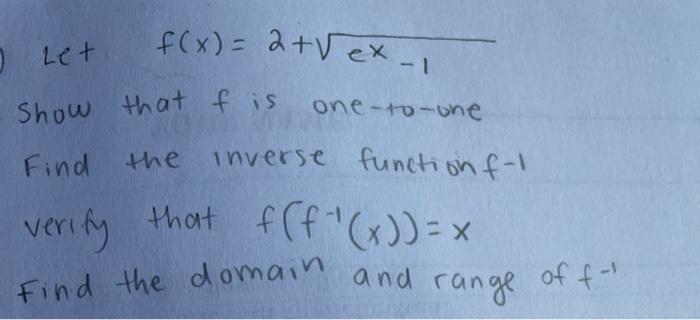 ) Let f(x) = 2+√ex-1
Show that f is one-to-one
Find the inverse function f-1
verify that f(f⁻¹(x)) = x
Find the domain and range of f⁻¹